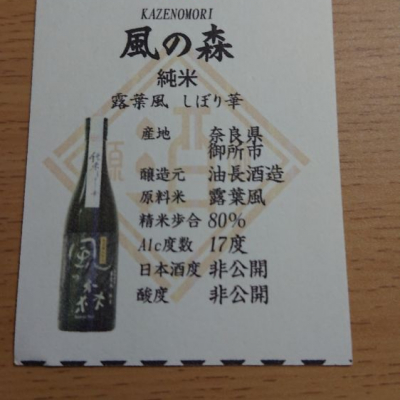 KAZENOMORI
風の森
純米
露葉風 しぼり華
産地 奈良県
御所市
醸造元 油長酒造
原料米 露葉風
精米歩合 80%
Alc度数 17度
日本酒度 非公開
酸度 非公開
風の森